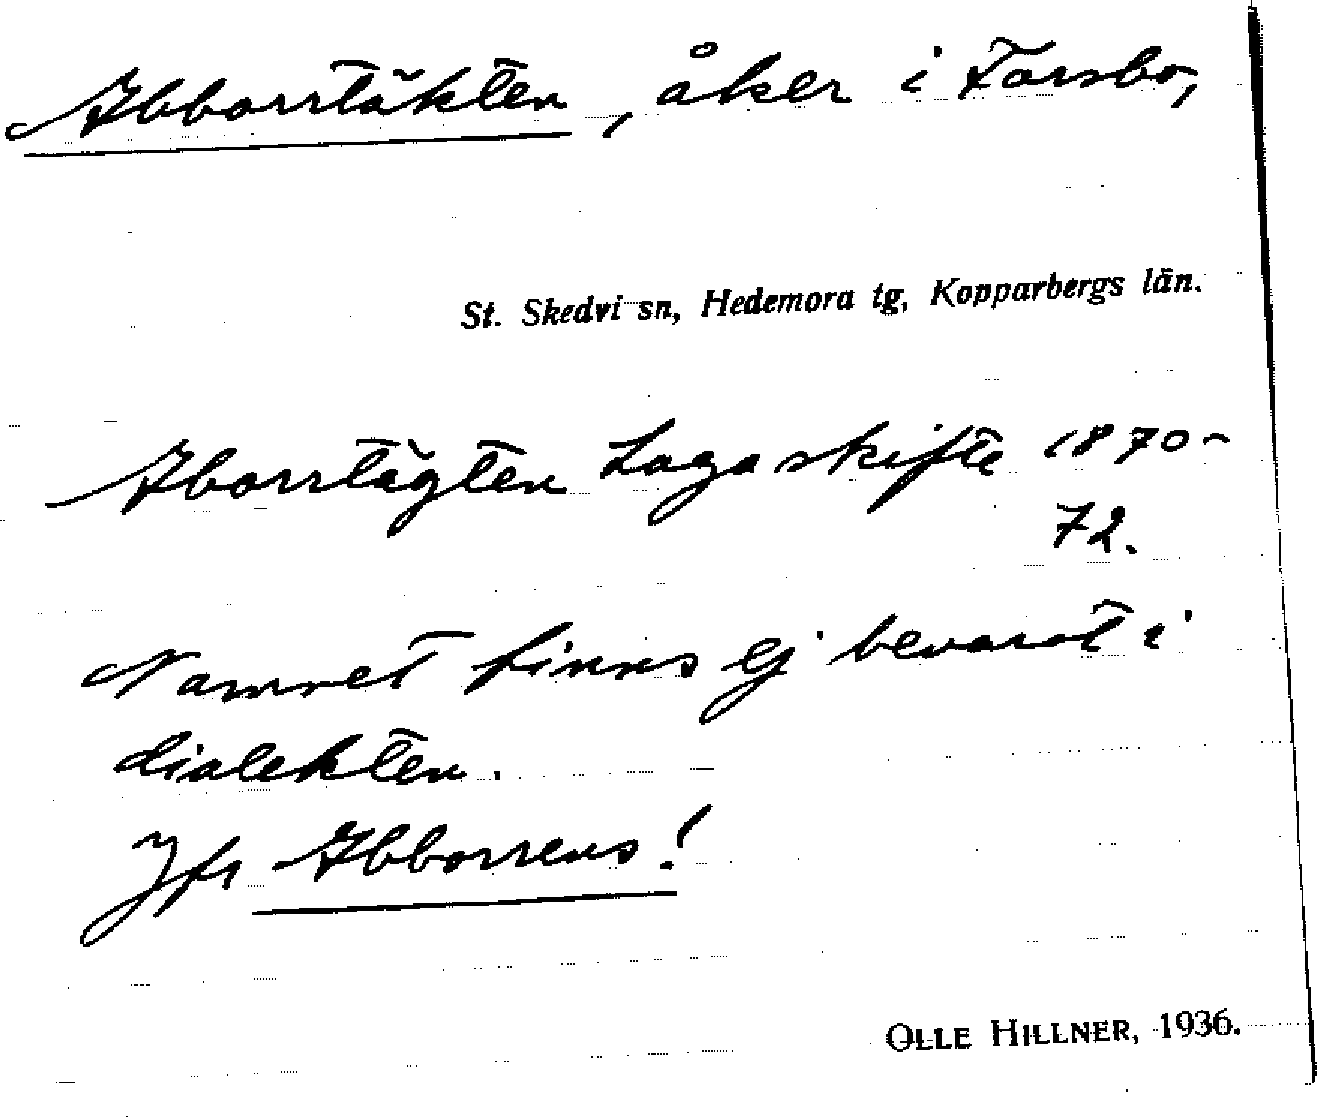 Abborrtäkten, åker i Forsbo,
St. Skedvi sn, Hedemora tg, Kopparbergs län.
Aborrtägten Laga skifte 1870-
72.
Namnet finns ej bevarat i
dialekten.
Jfr Abborrens!
OLLE HILLNER, 1936.